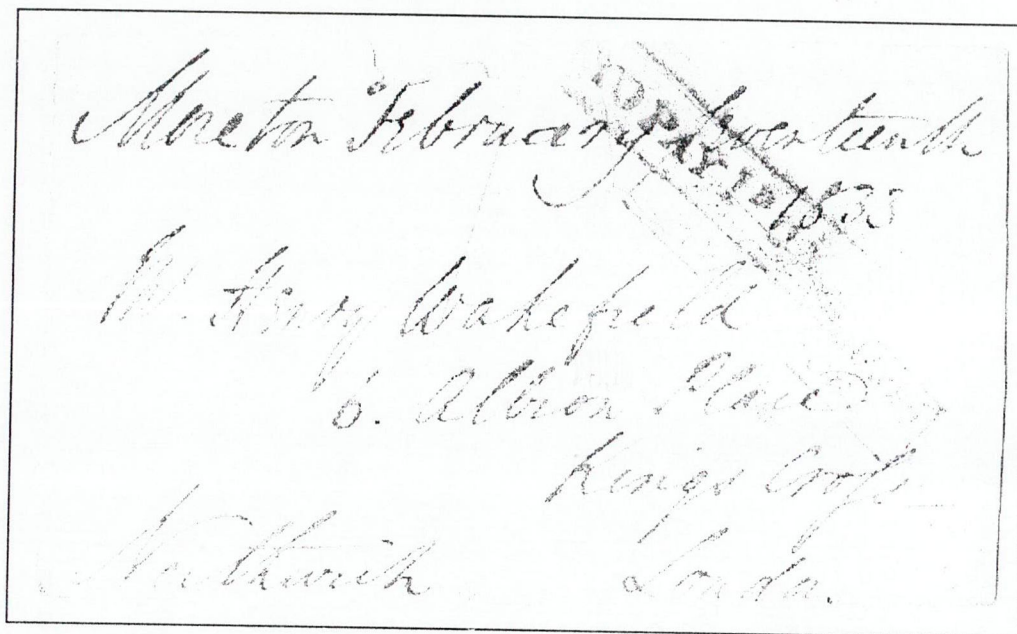 Moreton February Seventeenth
1833
TO PAY 1D
M. Henry Wakefield
6. Albion Place
Kings Cross
Northwick London.